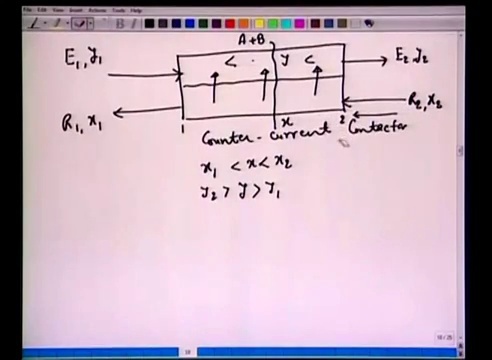 File Edit View Insert Actions Tools Help
A+B
E1, y1
< . y <
E2, y2
R1, x1
R2, x2
1 x 2
Counter-current Contactor
x1 < x < x2
y2 > y > y1